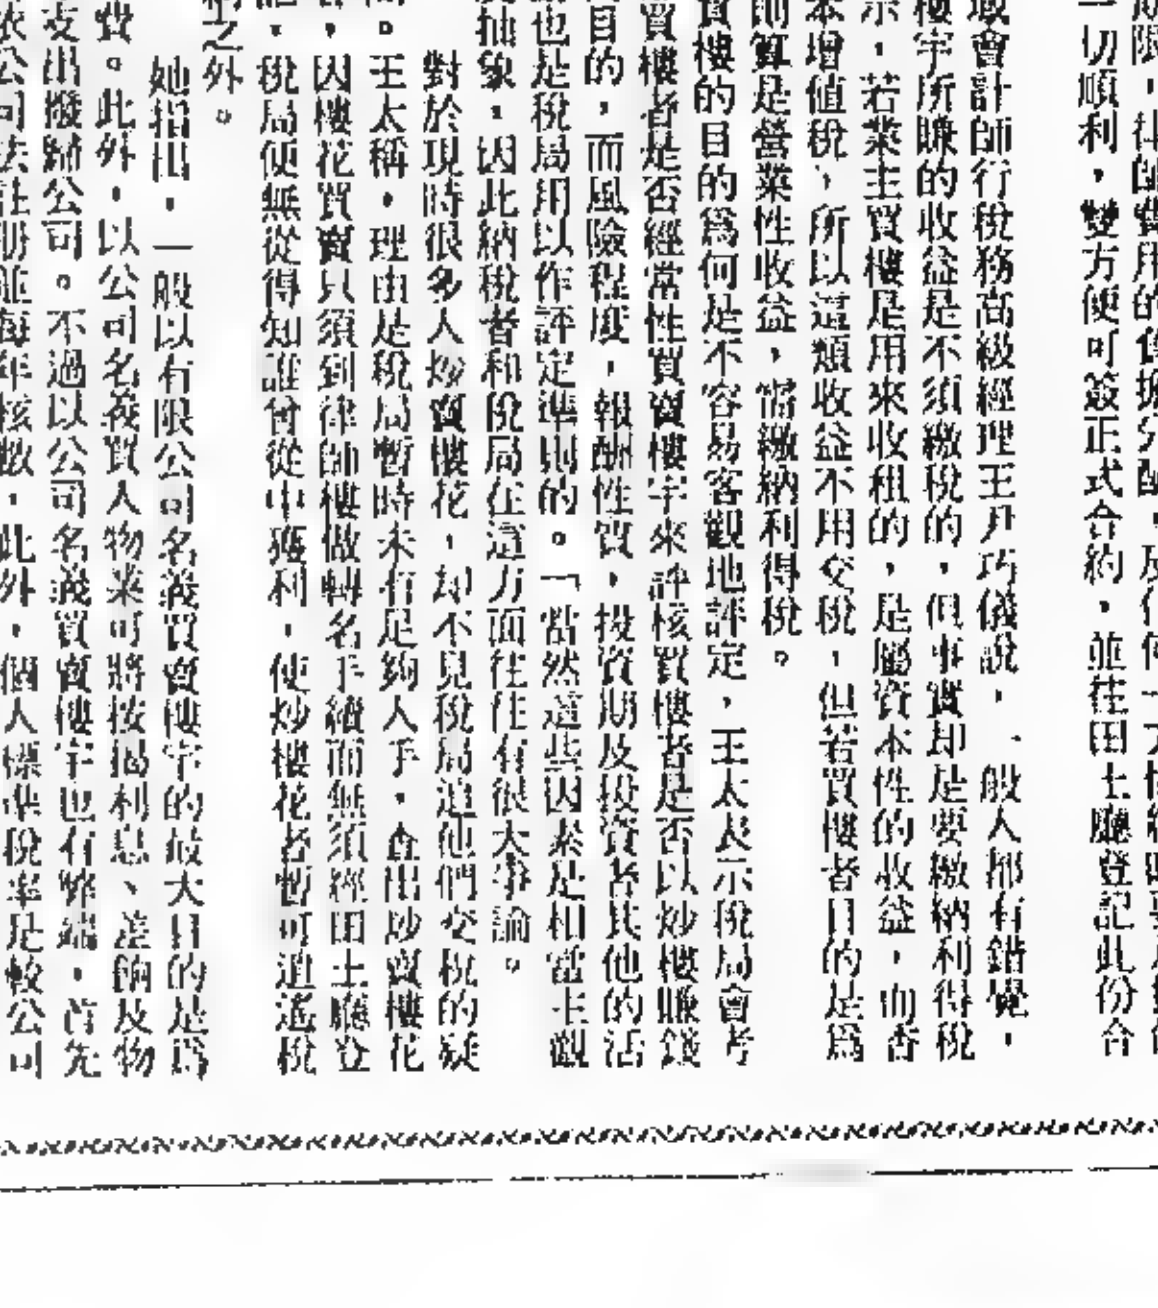 切順利，雙方便可簽正式合約，並往田土廳登記此份合
會計師行稅務高級經理王尹巧儀說，一般人都有錯覺，
樓宇所賺的收益是不須繳稅的，但事實却是要繳納利得稅
示，若業主買樓是用來收租的，是屬資本性的收益，而香
本增值稅，所以這類收益不用交稅，但若買樓者目的是爲
則算是營業性收益，需繳納利得稅。
買樓的目的爲何是不容易客觀地評定，王太表示稅局會考
買樓者是否經常性買賣樓宇來評核買樓者是否以炒樓賺錢
目的，而風險程度，報酬性質，投資期及投資者其他的活
也是稅局用以作評定準則的。「當然這些因素是相當主觀
抽象，因此納稅者和稅局在這方面往往有很大爭論。
對於現時很多人炒賣樓花，却不見稅局追他們交稅的疑
。王太稱，理由是稅局暫時未有足夠人手，查出炒賣樓花
，因樓花買賣只須到律師樓做轉名手續而無須經田土廳登
，稅局便無從得知誰曾從中獲利，使炒樓花者暫可逍遙稅
之外。
她指出，一般以有限公司名義買賣樓宇的最大目的是爲
費。此外，以公司名義買入物業可將按揭利息、差餉及物
支出撥歸公司。不過以公司名義買賣樓宇也有弊端，首先
依公司法註册並每年核數，此外，個人標準稅率是較公司